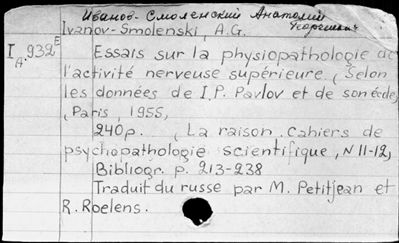 Иванов-Смоленский Анатолий
Георгиевич
Ivanov-Smolenski, A.G.
I A.932E
Essais sur la physiopathologie de
l'activité nerveuse supérieure, (Selon
les données de I.P. Pavlov et de son école,
(Paris, 1955,
240p. (La raison. Cahiers de
psychopathologie scientifique, N 11-12,
Bibliogr. p. 213-238
Traduit du russe par M. Petitjean et
R. Roelens.